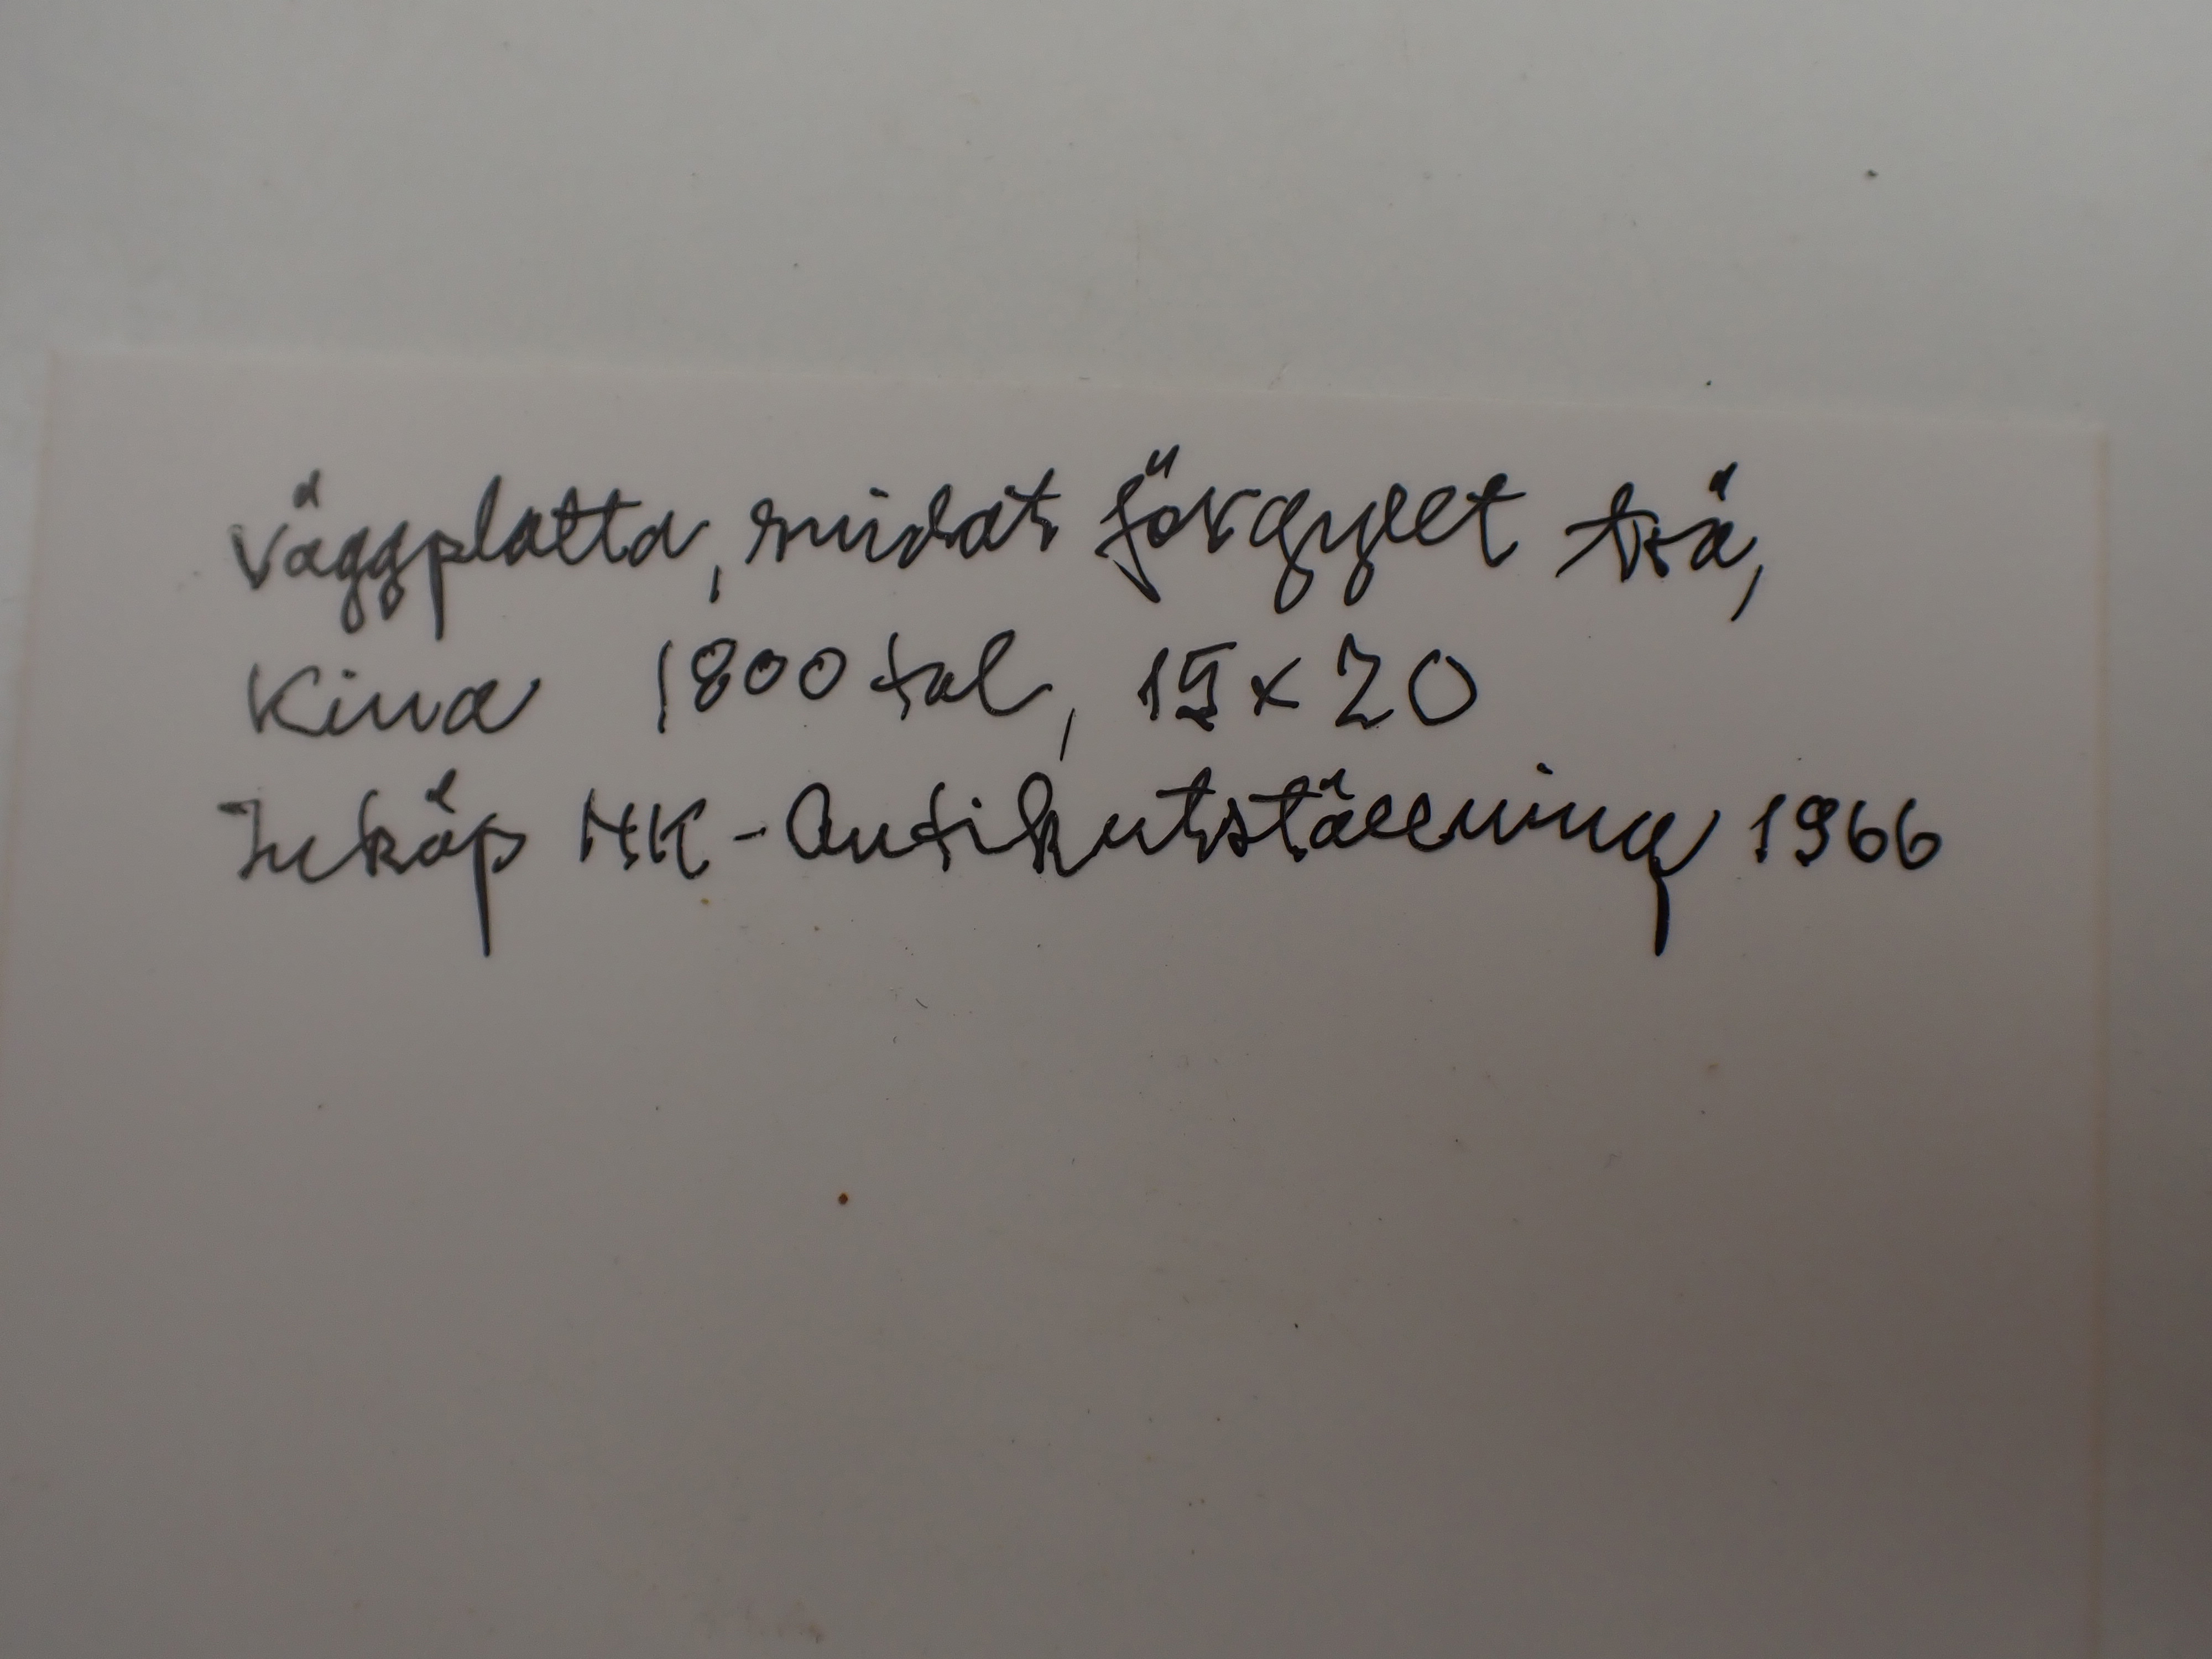 Väggplatta, snidat förgyllt trä,
Kina 1800 tal, 15 x 20
Inköp NK-Antikutställning 1966